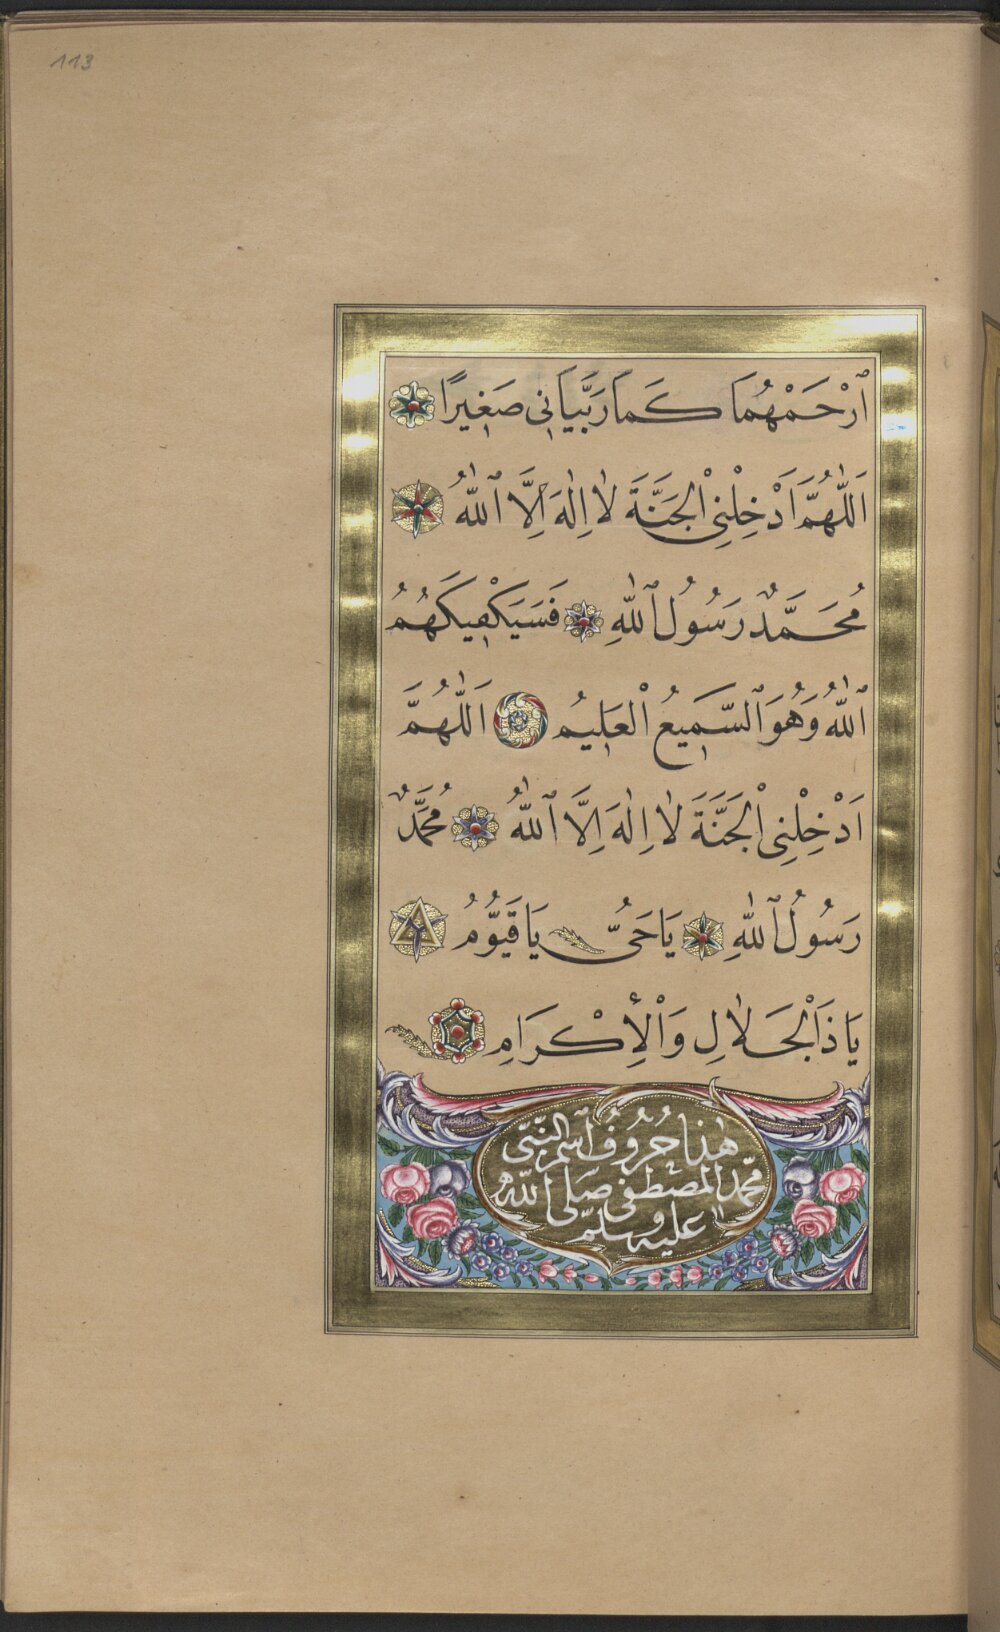 113
ٱرْحَمْهُمَا كَمَا رَبَّيَانِى صَغِيرًا
اَللّٰهُمَّ اَدْخِلْنِى الْجَنَّةَ لٰا اِلٰهَ اِلَّا ٱللّٰهُ
مُحَمَّدٌ رَسُولُ ٱللّٰهِ فَسَيَكْفِيكَهُمُ
ٱللّٰهُ وَهُوَ ٱلسَّمِيعُ الْعَلِيمُ اَللّٰهُمَّ
اَدْخِلْنِى الْجَنَّةَ لٰا اِلٰهَ اِلَّا ٱللّٰهُ مُحَمَّدٌ
رَسُولُ ٱللّٰهِ يَا حَىُّ يَا قَيُّومُ
يَا ذَا الْجَلٰالِ وَالْاِكْرَامِ
هٰذا حُرُوفُ ٱسْمِ النَّبِّى
مُحَمَّدٍ الْمُصْطَفٰى صَلَّى اللّٰهُ
عَلَيْهِ وَسَلَّمَ